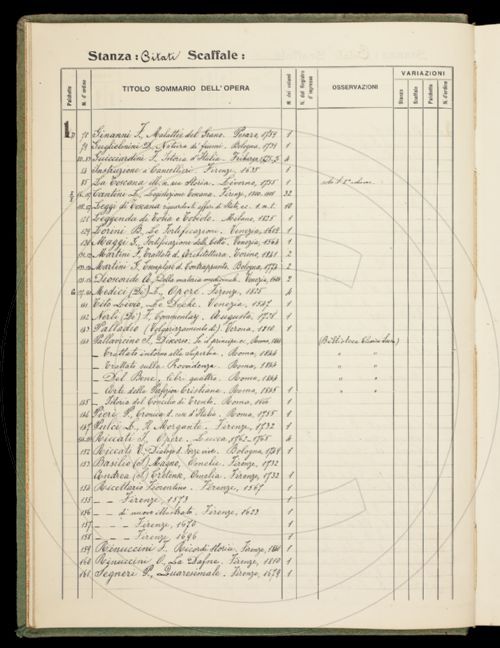 Stanza: Citati Scaffale:
Palchetto N. d'ordine TITOLO SOMMARIO DELL'OPERA N. dei volumi N. del Registro d'ingresso OSSERVAZIONI VARIAZIONI
Stanza Scaffale Palchetto N. d'ordine
78 Ginanni F., Malattie del Grano. Pesaro, 1759 1
79 Guglielmini D., Natura di fiumi. Bologna, 1739 1
Guicciardini F., Istoria d'Italia. Friburgo, 4
84 Instruzione a' Cancellieri. Firenze, 1635 1
85 La Toscana Livorno, 1
Cantini L., Legislazione Toscana. Firenze, 32
Leggi di Toscana 10
128 Leggenda di Tobia e Tobiolo. Milano, 1825 1
129 Lorini B., Le Fortificazioni. Venezia, 1609 1
130 Maggi G., Fortificazione delle Città. Venezia, 1564 1
Martini F., Trattato di Architettura. Torino, 1841 2
Martini G., Esemplare di Contrappunto. Bologna, 1774 2
Dioscoride Della materia medicinale. Venezia, 2
Medici (De') L., Opere. Firenze, 1825 4
141 Tito Livio, Le Deche. Venezia, 1547 1
142 Nerli (De') F., Commentarj. Augusta, 1728 1
143 Palladio (Volgarizzamento di). Verona, 1810 1
144 Pallavicino S., Discorso: Roma,
– Trattato intorno alla Superbia. Roma, 1844 " "
– Trattato sulla Provvidenza. Roma, 1844 " "
– Del Bene, libri quattro. Roma, 1844 " "
– Arte della Perfezion Cristiana. Roma, 1845 1 " "
145 – Istoria del Concilio di Trento. Roma, 1
146 Pieri P., Cronica d' Italia. Roma, 1755 1
147 Pulci L., Il Morgante. Firenze, 1732 1
Riccati J., Opere. Lucca, 1762-1765 4
152 Riccati V., Dialogo Bologna, 1
153 Basilio (S.) Magno, Omelie. Firenze, 1732
Andrea (S.) Cretense, Omelia. Firenze, 1732 1
154 Ricettario Fiorentino. Firenze, 1567 1
155 – – Firenze, 1573 1
156 – di nuovo illustrato. Firenze, 1623 1
157 – – Firenze, 1670 1
158 – – Firenze, 1696 1
159 Rinuccini F., Ricordi storici. Firenze, 1840 1
160 Rinuccini O., La Dafne. Firenze, 1810 1
161 Segneri P., Quaresimale. Firenze, 1679 1